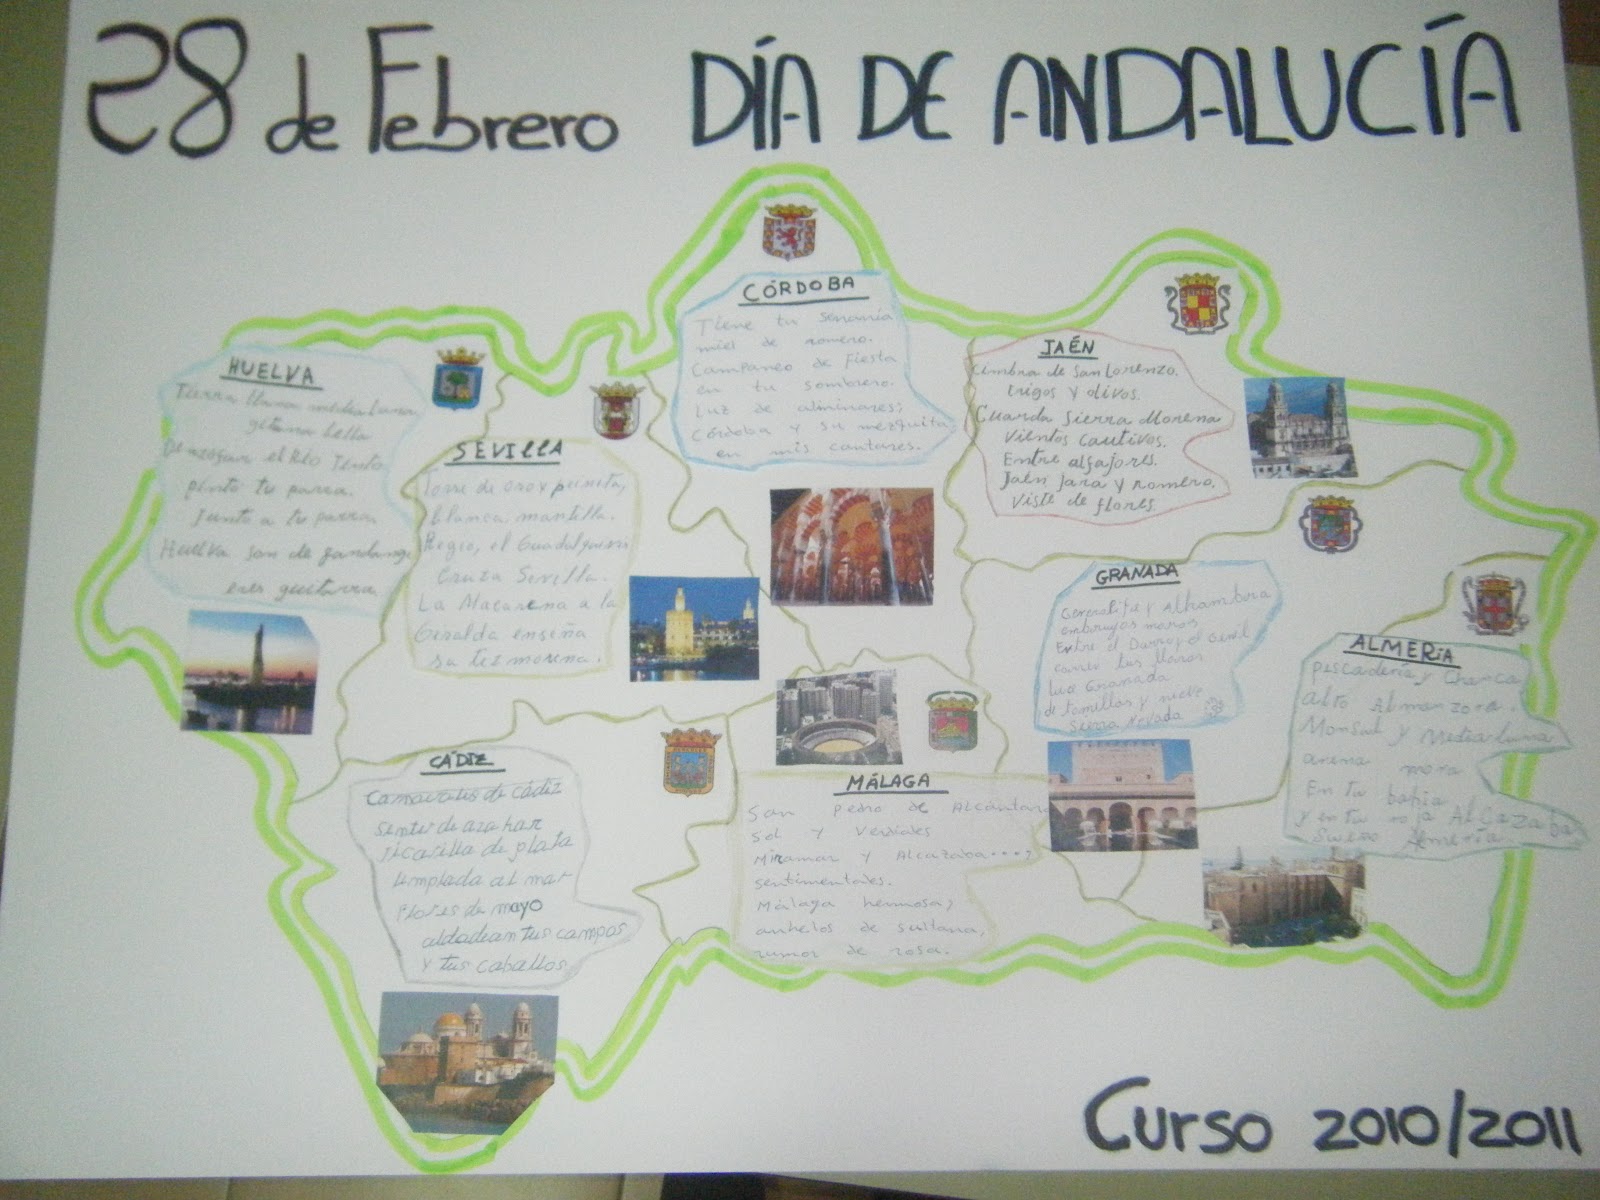 28 de Febrero DÍA DE ANDALUCÍA
HUELVA
Tierra llana media luna
gitana bella
De azogar el Río Tinto
pinto tu parra.
Junto a tu parra
Huelva son de fandango
eres guitarra
SEVILLA
Torre de oro y peineta,
blanca mantilla.
Regio, el Guadalquivir
Cruza Sevilla.
La Macarena a la
Giralda enseña
su tez morena.
CÓRDOBA
Tiene tu serranía
miel de romero.
Campaneo de Fiesta
en tu sombrero.
Luz de alminares;
Córdoba y su mezquita
en mis cantares.
JAÉN
Cimbra de San Lorenzo.
trigos y olivos.
Guarda Sierra Morena
Vientos Cautivos.
Entre alfajores.
Jaén Jara y romero,
Viste de flores.
GRANADA
Generalife y Alhambra
embrujos moros
Entre el Darro y el Genil
corren tus
Luz Granada
de tomillos y nieve
Sierra Nevada
ALMERíA
Pescadería y Chanca
alto Almanzora.
Monsul y Media luna
arena mora
En tu bahía
y en tu Alcazaba
Almería
CÁDIZ
de Cádiz
de azahar
de plata
limpiada al mar
Flores de mayo
tus campos
y tus caballos
MÁLAGA
San Pedro de Alcántara
Sol y Verdiales
Miramar y Alcazaba....,
sentimentales.
Málaga hermosa,
anhelos de sultana,
rumor de rosa.
Curso 2010/2011